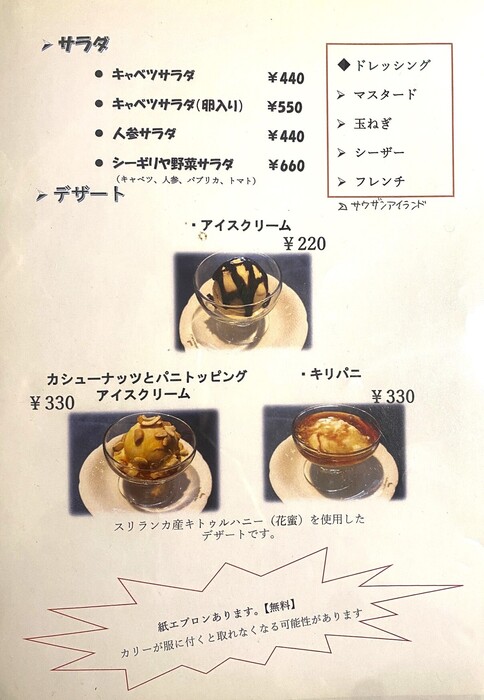 ➢ サラダ
● キャベツサラダ ￥440
● キャベツサラダ(卵入り) ￥550
● 人参サラダ ￥440
● シーギリヤ野菜サラダ ￥660
(キャベツ、人参、パプリカ、トマト)
◆ドレッシング
➢ マスタード
➢ 玉ねぎ
➢ シーザー
➢ フレンチ
➢ サウザンアイランド
➢ デザート
・アイスクリーム
￥220
カシューナッツとパニトッピング
アイスクリーム
￥330
・キリパニ
￥330
スリランカ産キトゥルハニー（花蜜）を使用した
デザートです。
紙エプロンあります。【無料】
カリーが服に付くと取れなくなる可能性があります